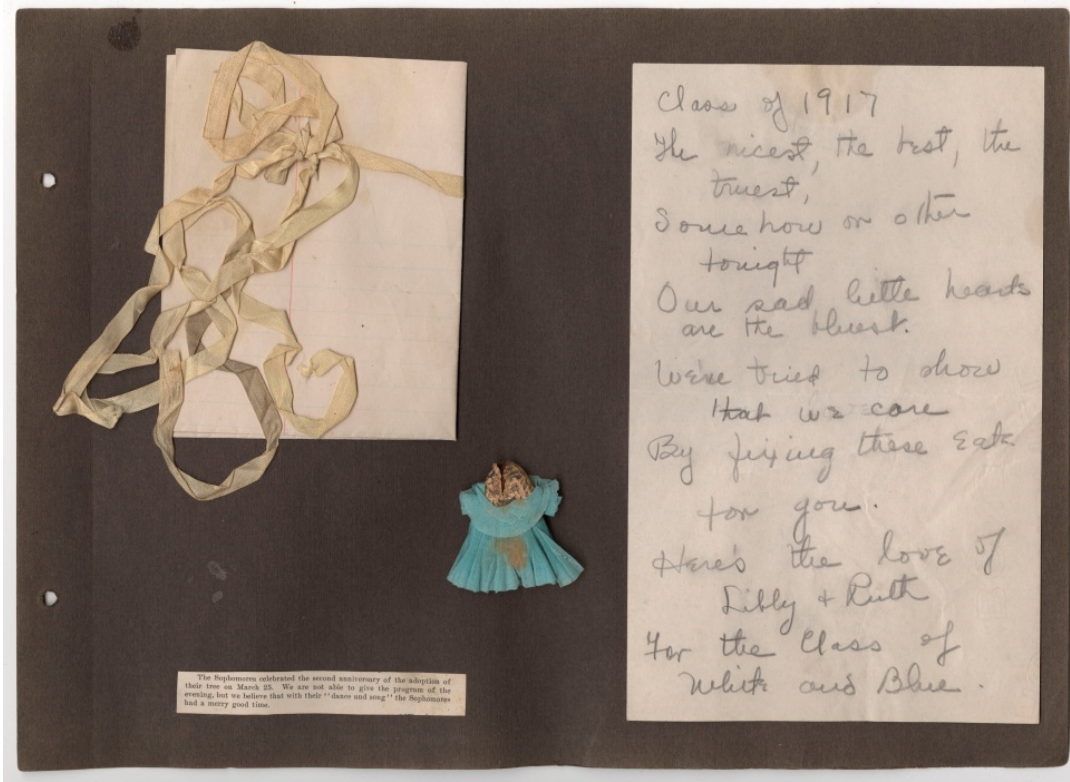 The Sophomores celebrated the second anniversary of the adoption of
their tree on March 25. We are not able to give the program of the
evening, but we believe that with their "dance and song" the Sophomores
had a merry good time.
Class of 1917
The nicest, the best, the
truest,
Somehow or other
tonight
Our sad little hearts
are the bluest.
We've tried to show
that we care
By fixing these eats
for you.
Here's the love of
Libby + Ruth
For the Class of
White and Blue.